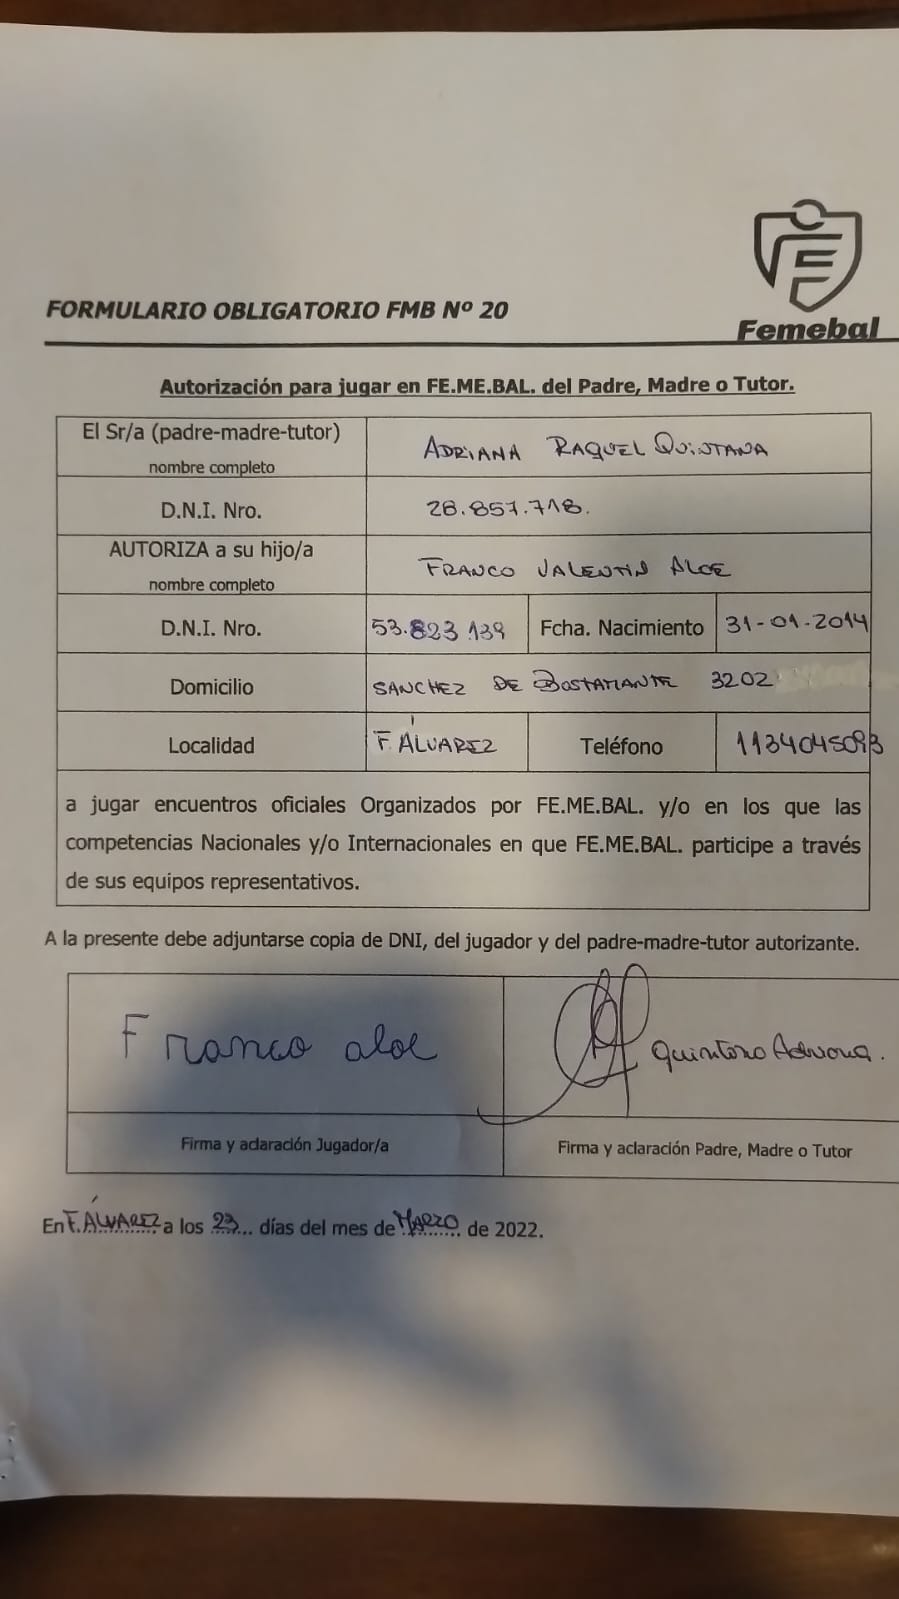 Femebal
FORMULARIO OBLIGATORIO FMB Nº 20
Autorización para jugar en FE.ME.BAL. del Padre, Madre o Tutor.
El Sr/a (padre-madre-tutor)
nombre completo
ADRIANA RAQUEL QUINTANA
D.N.I. Nro.
28.857.718.
AUTORIZA a su hijo/a
nombre completo
FRANCO VALENTIN ALOE
D.N.I. Nro.
53.823.139
Fcha. Nacimiento
31-01-2014
Domicilio
SANCHEZ DE BUSTAMANTE 3202
Localidad
F. ÁLVAREZ
Teléfono
1134045093
a jugar encuentros oficiales Organizados por FE.ME.BAL. y/o en los que las
competencias Nacionales y/o Internacionales en que FE.ME.BAL. participe a través
de sus equipos representativos.
A la presente debe adjuntarse copia de DNI, del jugador y del padre-madre-tutor autorizante.
Franco aloe
Quintana Adriana.
Firma y aclaración Jugador/a
Firma y aclaración Padre, Madre o Tutor
En F. ÁLVAREZ a los 23 días del mes de MARZO de 2022.